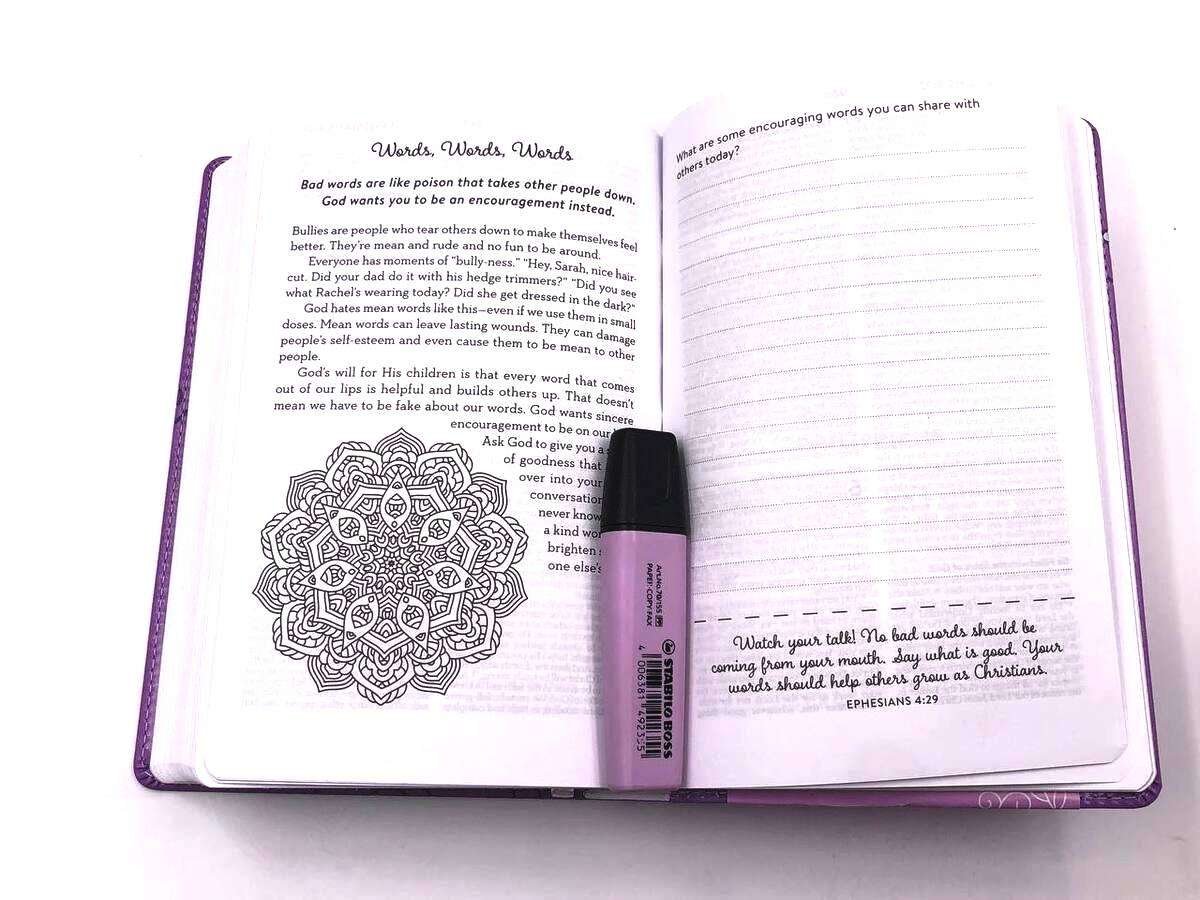 Words, Words, Words
Bad words are like poison that takes other people down.
God wants you to be an encouragement instead.
Bullies are people who tear others down to make themselves feel
better. They're mean and rude and no fun to be around.
Everyone has moments of "bully-ness." "Hey, Sarah, nice hair-
cut. Did your dad do it with his hedge trimmers?" "Did you see
what Rachel's wearing today? Did she get dressed in the dark?"
God hates mean words like this—even if we use them in small
doses. Mean words can leave lasting wounds. They can damage
people's self-esteem and even cause them to be mean to other
people.
God's will for His children is that every word that comes
out of our lips is helpful and builds others up. That doesn't
mean we have to be fake about our words. God wants sincere
encouragement to be on our
Ask God to give you a
of goodness that
over into your
conversation
never know
a kind
brighten
one else's
What are some encouraging words you can share with
others today?
Watch your talk! No bad words should be
coming from your mouth. Say what is good. Your
words should help others grow as Christians.
EPHESIANS 4:29
Art.No.70/155
PAPER COPY FAX
STABILO BOSS
4 006381 492355